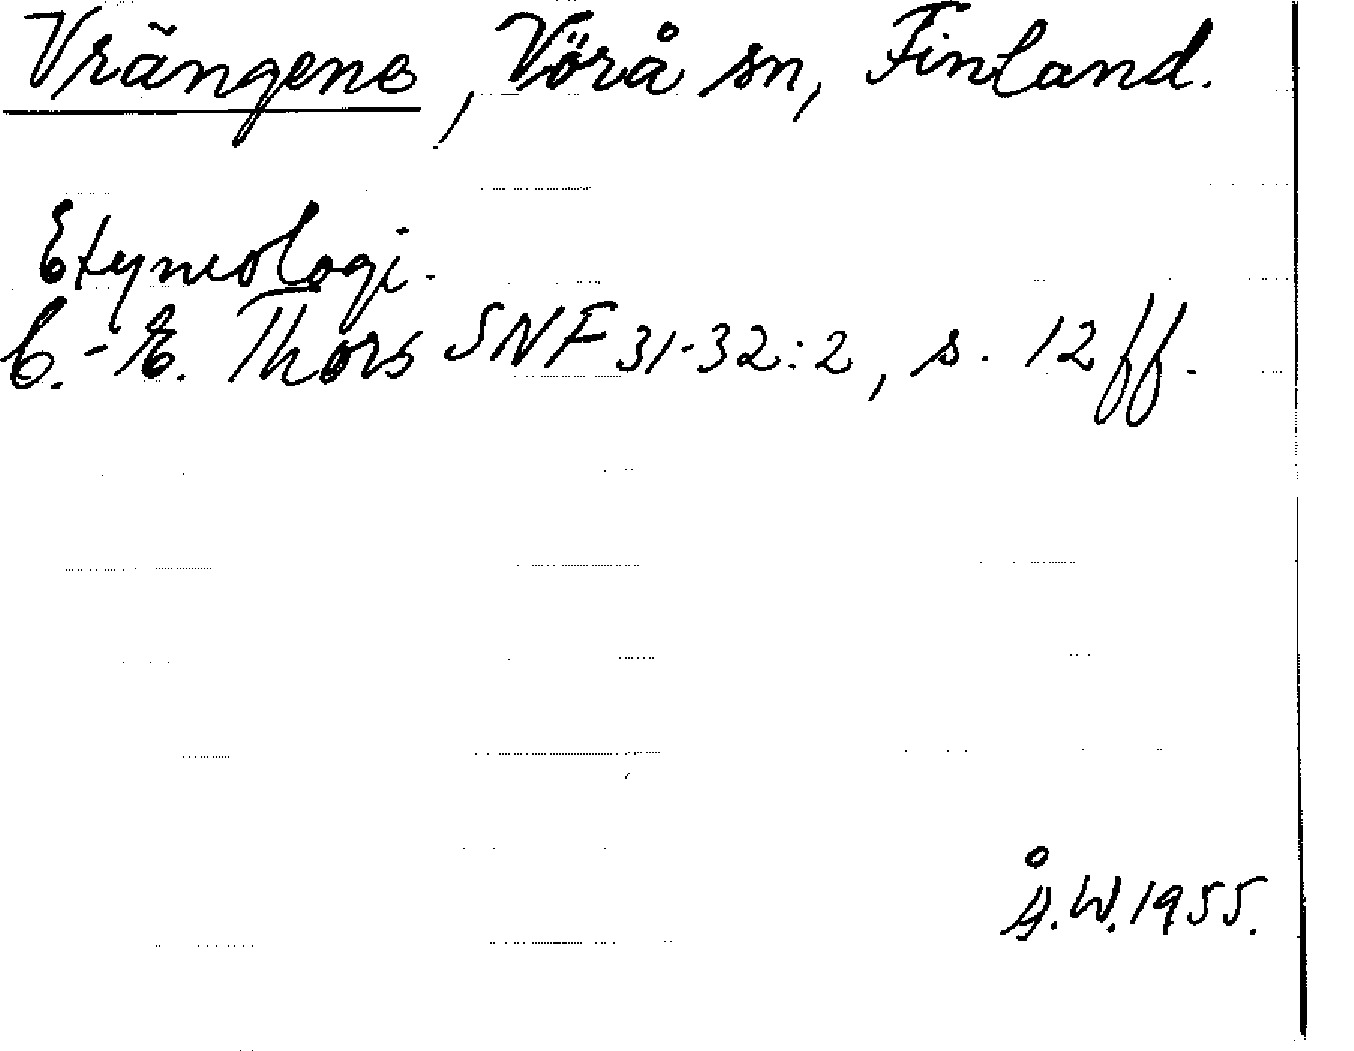 Vrängens, Vörå sn, Finland.
Etymologi.
C.-E. Thors SNF 31-32:2, s. 12 ff.
Å.W. 1955.